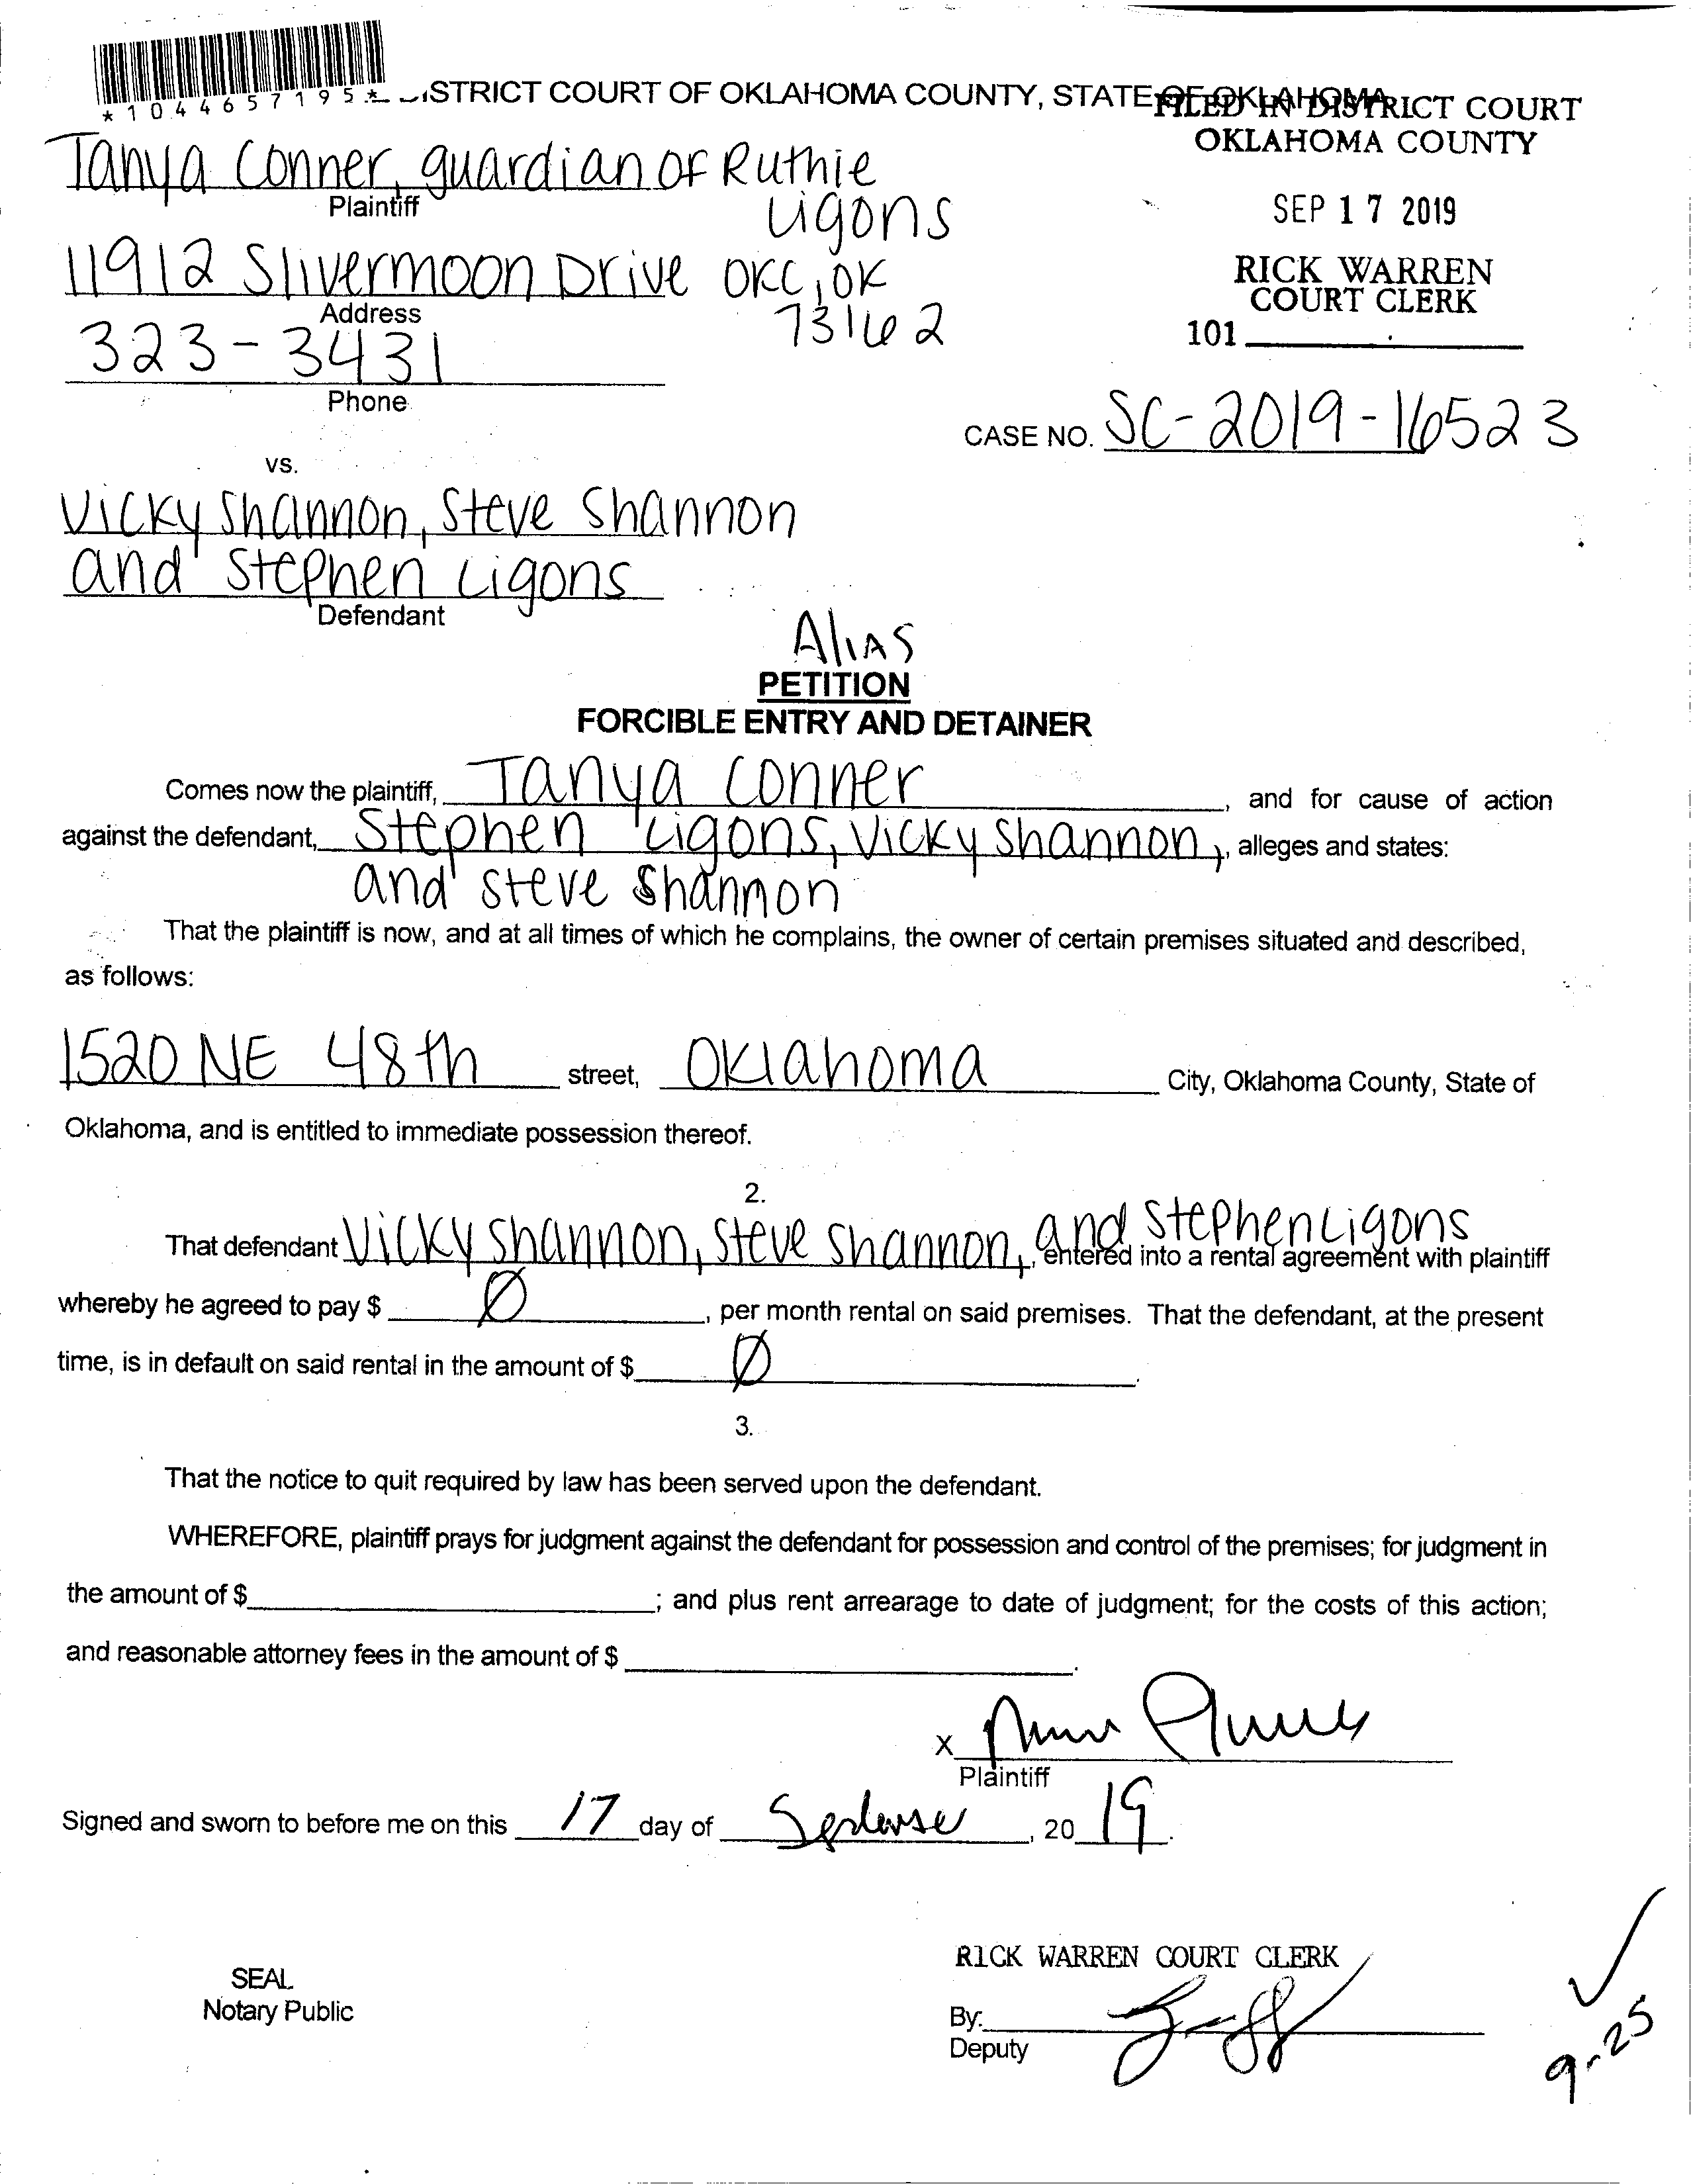 *1044657195*
STRICT COURT OF OKLAHOMA COUNTY, STATE OF OKLAHOMA
FILED IN DISTRICT COURT
OKLAHOMA COUNTY
SEP 17 2019
RICK WARREN
COURT CLERK
101
Tanya Conner, guardian of Ruthie
Ligons
Plaintiff
11912 Slivermoon Drive OKC, OK
73162
Address
323-3431
Phone
CASE NO. SC-2019-16523
vs.
Vicky Shannon, Steve Shannon
and Stephen Ligons
Defendant
Alias
PETITION
FORCIBLE ENTRY AND DETAINER
Comes now the plaintiff, Tanya Conner, and for cause of action
against the defendant, Stephen Ligons, Vicky Shannon, alleges and states:
and Steve Shannon
That the plaintiff is now, and at all times of which he complains, the owner of certain premises situated and described,
as follows:
1520 NE 48th street, Oklahoma City, Oklahoma County, State of
Oklahoma, and is entitled to immediate possession thereof.
2.
That defendant Vicky Shannon, Steve Shannon, and Stephen Ligons, entered into a rental agreement with plaintiff
whereby he agreed to pay $ Ø, per month rental on said premises. That the defendant, at the present
time, is in default on said rental in the amount of $ Ø.
3.
That the notice to quit required by law has been served upon the defendant.
WHEREFORE, plaintiff prays for judgment against the defendant for possession and control of the premises; for judgment in
the amount of $ ; and plus rent arrearage to date of judgment; for the costs of this action;
and reasonable attorney fees in the amount of $ .
X
Plaintiff
Signed and sworn to before me on this 17 day of September, 20 19.
RICK WARREN COURT CLERK
SEAL
Notary Public
By:
Deputy
9-25